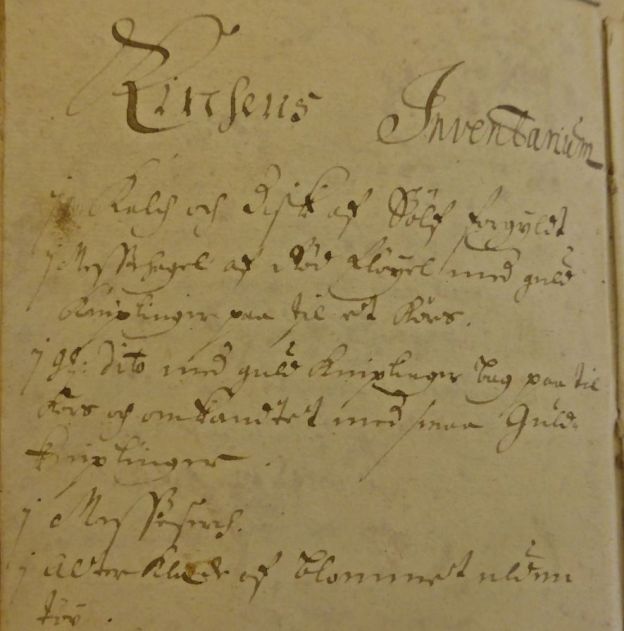 Kirchens Inventarium
j Kalch och Disk af Sölf forgyldt
j Messehagel af Röd Flöyel med guld
Kniplinger paa til et Kors.
j gl: dito med guld Kniplinger bag paa til
Kors och omkandtet med smaa Guld-
Kniplinger.
j Messeserch.
j Alter Klæde af blommet ulden
töy.